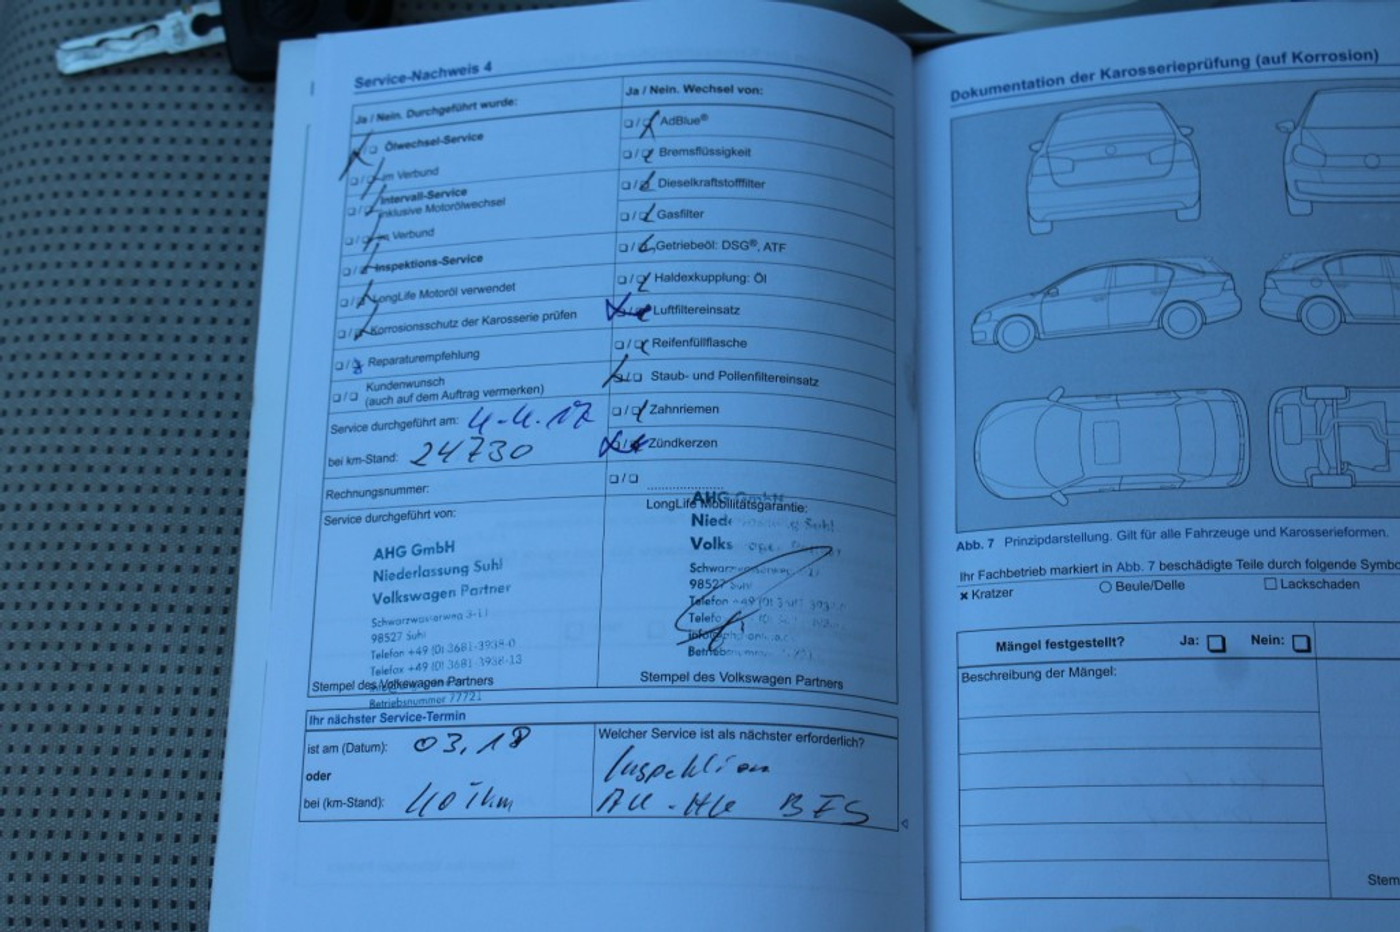 Service-Nachweis 4
Ja / Nein. Durchgeführt wurde:
Ölwechsel-Service
im Verbund
Intervall-Service
inklusive Motorölwechsel
im Verbund
Inspektions-Service
LongLife Motoröl verwendet
Korrosionsschutz der Karosserie prüfen
Reparaturempfehlung
Kundenwunsch
(auch auf dem Auftrag vermerken)
Service durchgeführt am: 4.4.17
bei km-Stand: 24730
Rechnungsnummer:
Service durchgeführt von:
AHG GmbH
Niederlassung Suhl
Volkswagen Partner
Schwarzwasserweg 3-11
98527 Suhl
Telefon +49 (0) 3681-3938-0
Telefax +49 (0) 3681-3938-13
Stempel des Volkswagen Partners
Betriebsnummer 77721
Ja / Nein. Wechsel von:
AdBlue®
Bremsflüssigkeit
Dieselkraftstofffilter
Gasfilter
Getriebeöl: DSG®, ATF
Haldexkupplung: Öl
Luftfiltereinsatz
Reifenfüllflasche
Staub- und Pollenfiltereinsatz
Zahnriemen
Zündkerzen
AHG GmbH
LongLife Mobilitätsgarantie:
Suhl
98527 Suhl
Telefon
Stempel des Volkswagen Partners
Ihr nächster Service-Termin
ist am (Datum): 03.18
oder
bei (km-Stand): 40 Tkm
Welcher Service ist als nächster erforderlich?
Inspektion
AU - HU BFS
Dokumentation der Karosserieprüfung (auf Korrosion)
Abb. 7 Prinzipdarstellung. Gilt für alle Fahrzeuge und Karosserieformen.
Ihr Fachbetrieb markiert in Abb. 7 beschädigte Teile durch folgende Symbo
x Kratzer
Beule/Delle
Lackschaden
Mängel festgestellt? Ja: Nein:
Beschreibung der Mängel:
Stem